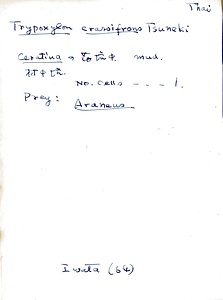 Thai
Trypoxylon crassifrons Tsuneki
Ceratina → mud.
No. cells - - - 1.
Prey: Araneus
Iwata (64)